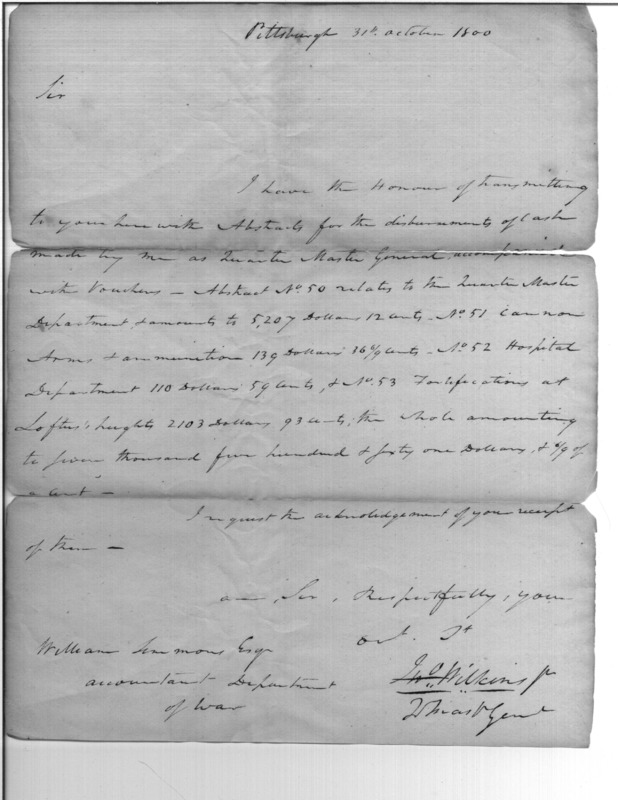 Pittsburgh 31st October 1800
Sir
I have the Honour of transmitting
to you herewith Abstracts for the disbursments of Cash
made by me as Quarter Master General, accompanied
with Vouchers — Abstract No. 50 relates to the Quarter Master
Department & amounts to 5,207 Dollars 12 Cents — No. 51 Cannon
Arms & ammunition 139 Dollars 36 6/9 Cents — No. 52 Hospital
Department 110 Dollars 59 Cents, & No. 53 Fortifications at
Loftus's heights 2103 Dollars 93 Cents, the whole amounting
to seven thousand five hundred & sixty one Dollars, & 6/9 of
a Cent —
I request the acknowledgement of your receipt
of them —
am, Sir, Respectfully, your
obt. St
William Simmons Esqr
accountant Department
of War
Jno. Wilkins Jr
QMast Genl